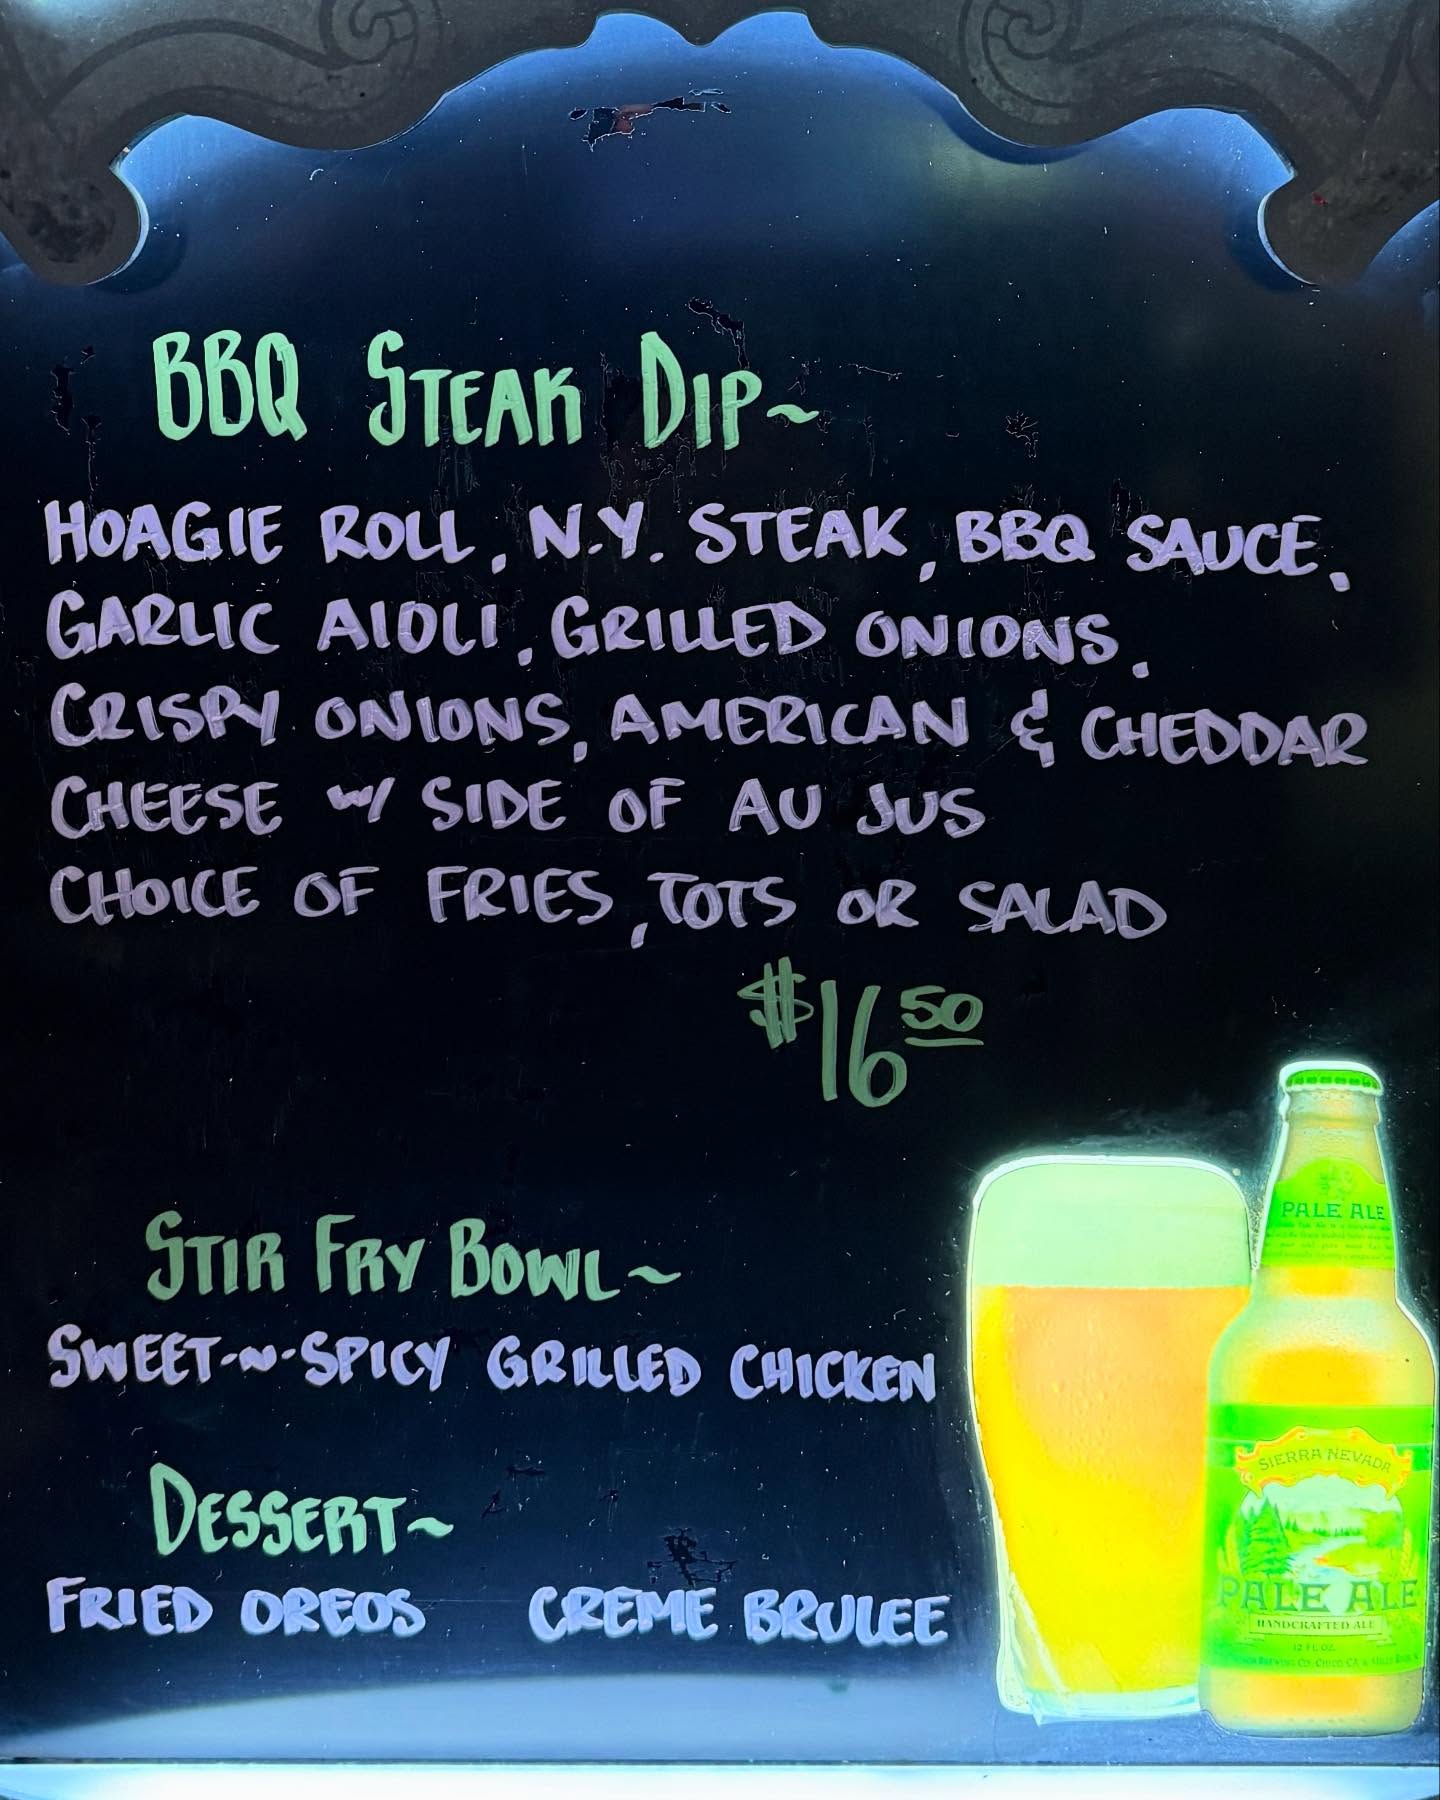 BBQ STEAK DIP~
HOAGIE ROLL, N.Y. STEAK, BBQ SAUCE,
GARLIC AIOLI, GRILLED ONIONS,
CRISPY ONIONS, AMERICAN & CHEDDAR
CHEESE w/ SIDE OF AU JUS
CHOICE OF FRIES, TOTS OR SALAD
$16.50
STIR FRY BOWL~
SWEET-N-SPICY GRILLED CHICKEN
DESSERT~
FRIED OREOS CREME BRULEE
PALE ALE
SIERRA NEVADA
PALE ALE
HANDCRAFTED ALE
12 FL. OZ.